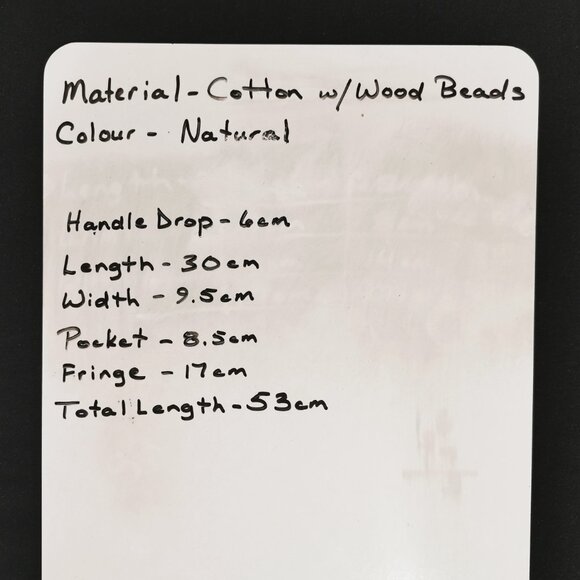 Material - Cotton w/ Wood Beads
Colour - Natural
Handle Drop - 6cm
Length - 30cm
Width - 9.5cm
Pocket - 8.5cm
Fringe - 17cm
Total Length - 53cm